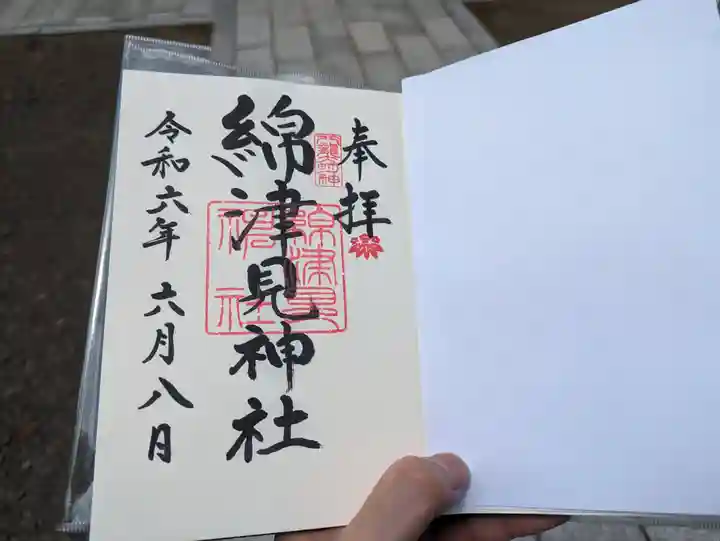 奉拝
綿津見神社
綿津見神社
令和六年 六月八日